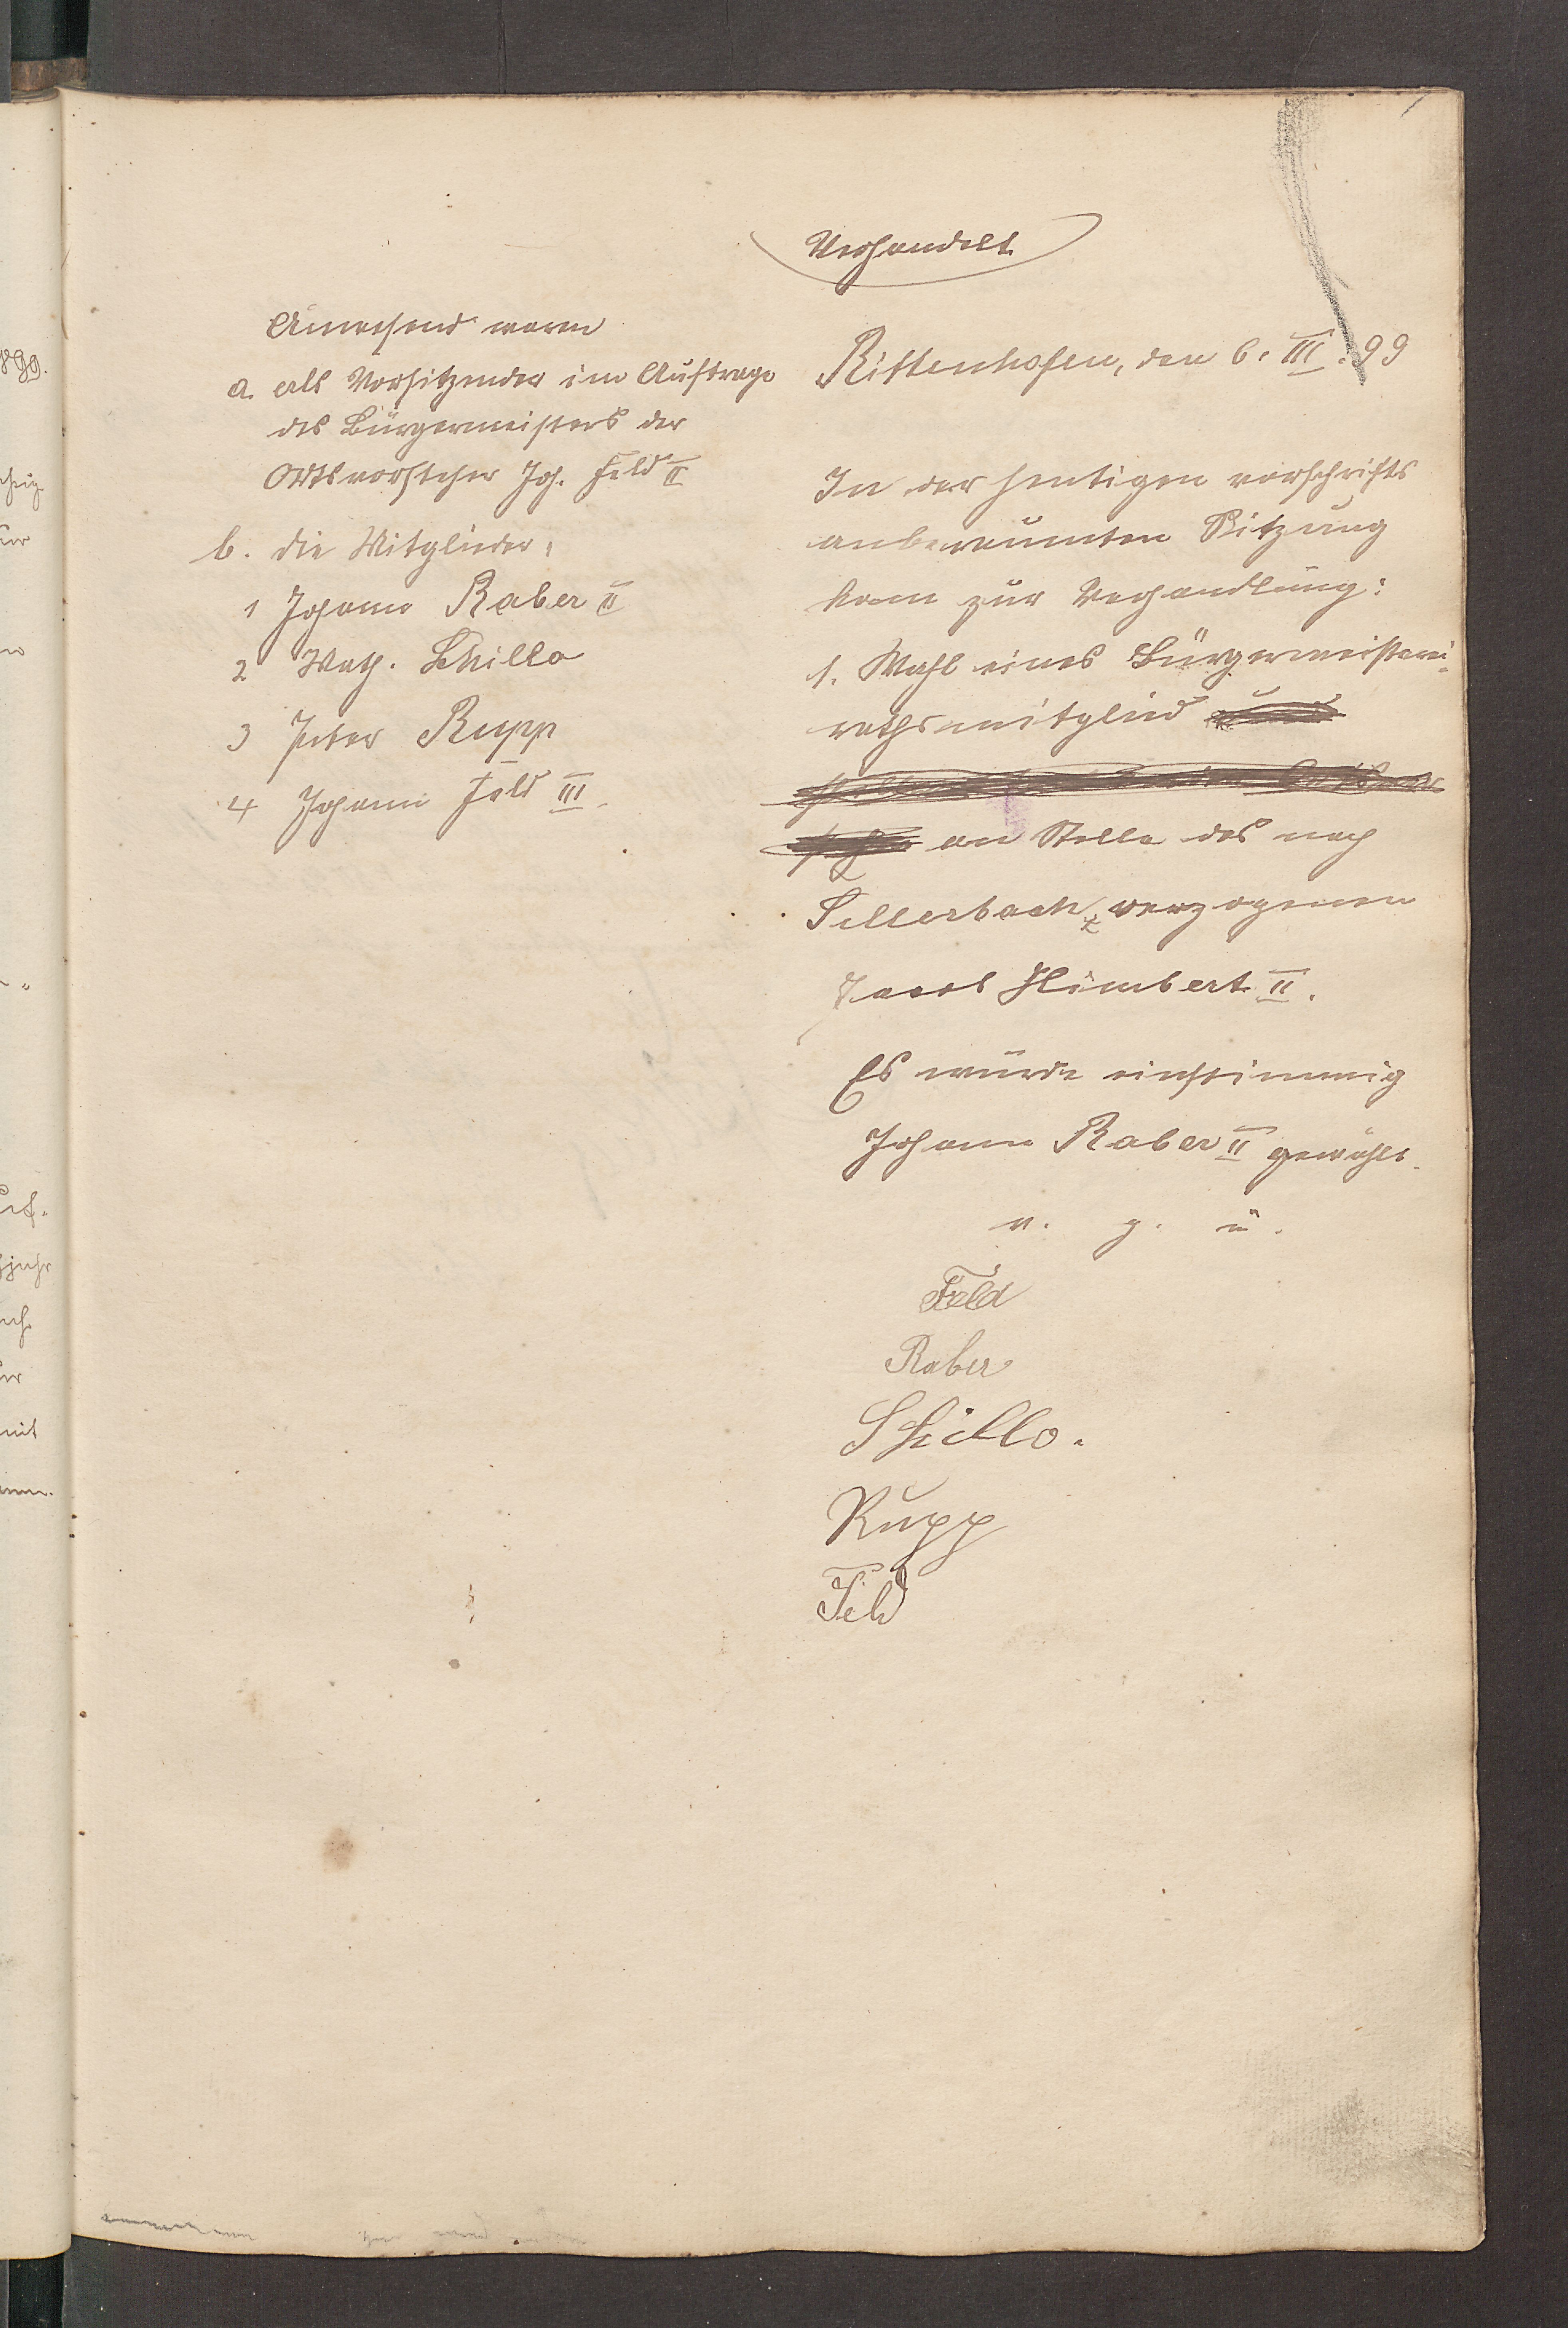 Verhandelt
Anwesend waren
a. als Vorsitzender im Auftrage
des Bürgermeisters der
Ortsvorsteher Joh. Feld II
b. die Mitglieder:
1 Johann Raber II
2 Math. Schillo
3 Peter Rupp
4 Johann Feld III.
Rittenhofen, den 6. III. 99
In der heutigen vorschrifts
anberaumten Sitzung
kam zur Verhandlung:
1. Wahl eines Bürgermeisterei-
rathsmitglied
an Stelle des nach
Sellerbach verzogenen
Jacob Himbert II.
Es wurde einstimmig
Johann Raber II gewählt.
v. g. u.
Feld
Raber
Schillo.
Rupp
Feld